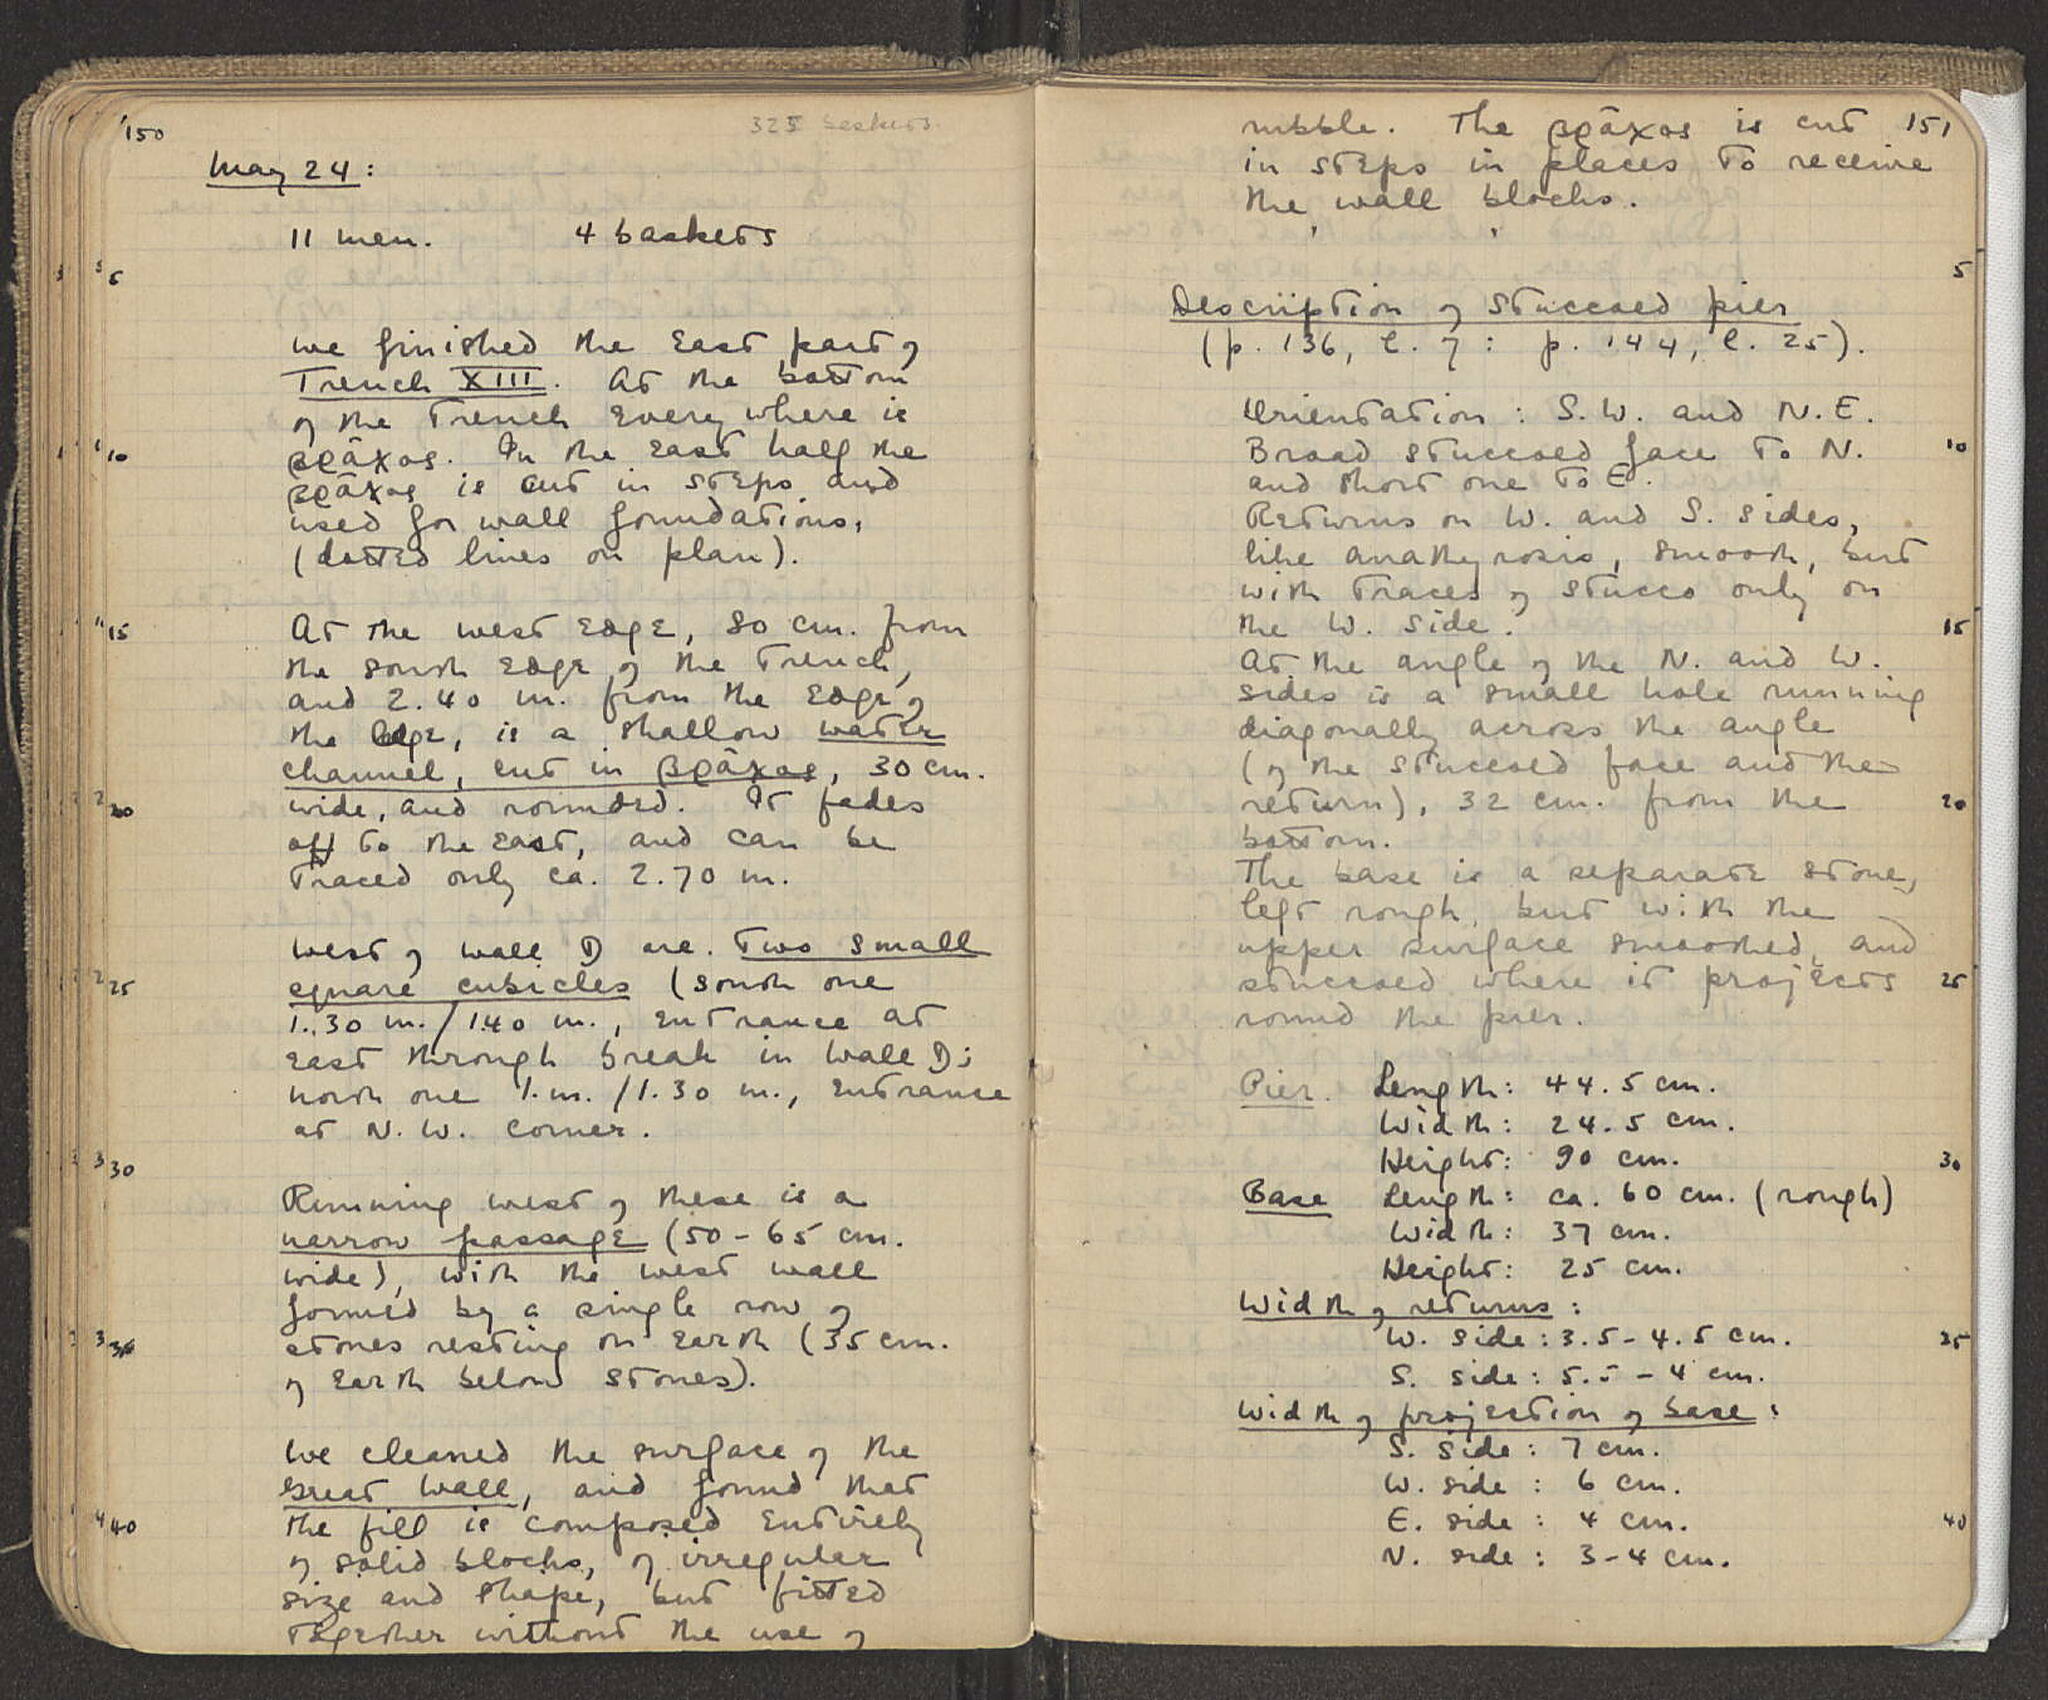 150
325 baskets.
May 24:
11 men. 4 baskets
5
We finished the East part of
Trench XIII. At the bottom
of the trench everywhere is
10
βράχος. In the East half the
βράχος is cut in steps and
used for wall foundations,
(dotted lines on plan).
15
At the west edge, 80 cm. from
the south edge of the trench,
and 2.40 m. from the edge of
the edge, is a shallow water
channel, cut in βράχος, 30 cm.
20
wide, and rounded. It fades
off to the east, and can be
traced only ca. 2.70 m.
West of wall D are two small
25
square cubicles (south one
1.30 m./1.40 m., entrance at
east through break in wall D;
north one 1. m. /1.30 m., entrance
at N. W. corner.
30
Running west of these is a
narrow passage (50-65 cm.
wide), with the west wall
formed by a single row of
35
stones resting on earth (35 cm.
of earth below stones).
We cleaned the surface of the
Great Wall, and found that
40
the fill is composed entirely
of solid blocks, of irregular
size and shape, but fitted
together without the use of
151
rubble. The βράχος is cut
in steps in places to receive
the wall blocks.
5
Description of stuccoed pier
(p. 136, l. 7: p. 144, l. 25).
Orientation: S. W. and N. E.
10
Broad stuccoed face to N.
and short one to E.
Returns on W. and S. sides,
like anathyrosis, smooth, but
with traces of stucco only on
15
the W. side.
At the angle of the N. and W.
sides is a small hole running
diagonally across the angle
(of the stuccoed face and the
20
return), 32 cm. from the
bottom.
The base is a separate stone,
left rough, but with the
upper surface smoothed, and
25
stuccoed where it projects
round the pier.
Pier. Length: 44.5 cm.
Width: 24.5 cm.
30
Height: 90 cm.
Base Length: ca. 60 cm. (rough)
Width: 37 cm.
Height: 25 cm.
Width of returns:
35
W. side: 3.5-4.5 cm.
S. side: 5.5 - 4 cm.
Width of projection of base:
S. side: 7 cm.
W. side: 6 cm.
40
E. side: 4 cm.
N. side: 3-4 cm.